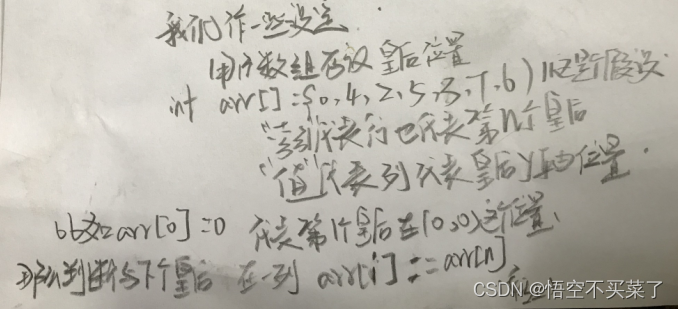 我们作一些设定
用户数组存放皇后位置
int arr[] = {0,4,2,5,3,1,6} 
"索引"代表行也代表第n个皇后
"值"代表列代表皇后y轴位置.
比如arr[0]=0 代表第1个皇后在(0,0)这个位置、
那么判断与下个皇后 在一列 arr[i] == arr[n]
CSDN @悟空不买菜了